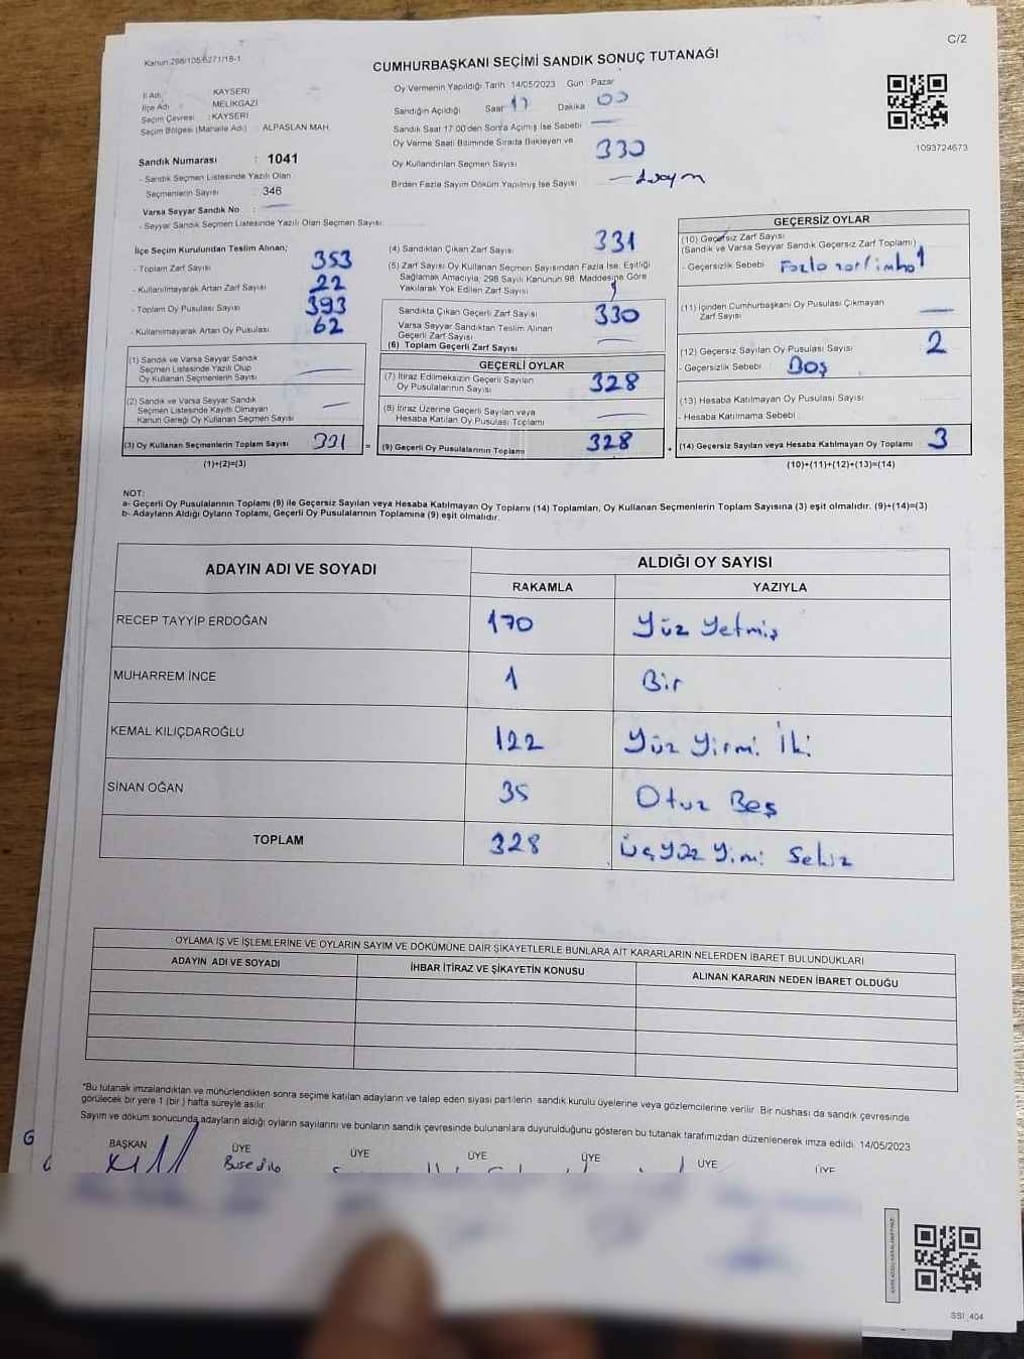 C/2
Kanun 298/105,6271/18-1
CUMHURBAŞKANI SEÇİMİ SANDIK SONUÇ TUTANAĞI
İl Adı : KAYSERİ
İlçe Adı : MELİKGAZİ
Seçim Çevresi : KAYSERİ
Seçim Bölgesi (Mahalle Adı) : ALPASLAN MAH.
Oy Vermenin Yapıldığı Tarih 14/05/2023 Gün : Pazar
Sandığın Açıldığı Saat 17 Dakika 00
Sandık Saat 17:00'den Sonra Açılmış İse Sebebi
Oy Verme Saati Bitiminde Sırada Bekleyen ve
Oy Kullandırılan Seçmen Sayısı 330
Birden Fazla Sayım Döküm Yapılmış İse Sayısı
1093724673
Sandık Numarası : 1041
- Sandık Seçmen Listesinde Yazılı Olan
Seçmenlerin Sayısı : 346
Varsa Seyyar Sandık No :
- Seyyar Sandık Seçmen Listesinde Yazılı Olan Seçmen Sayısı:
İlçe Seçim Kurulundan Teslim Alınan;
- Toplam Zarf Sayısı 353
- Kullanılmayarak Artan Zarf Sayısı 22
- Toplam Oy Pusulası Sayısı 393
- Kullanılmayarak Artan Oy Pusulası 62
(1) Sandık ve Varsa Seyyar Sandık
Seçmen Listesinde Yazılı Olup
Oy Kullanan Seçmenlerin Sayısı
(2) Sandık ve Varsa Seyyar Sandık
Seçmen Listesinde Kayıtlı Olmayan
Kanun Gereği Oy Kullanan Seçmen Sayısı
(3) Oy Kullanan Seçmenlerin Toplam Sayısı 331 =
(1)+(2)=(3)
(4) Sandıktan Çıkan Zarf Sayısı 331
(5) Zarf Sayısı Oy Kullanan Seçmen Sayısından Fazla İse, Eşitliği
Sağlamak Amacıyla, 298 Sayılı Kanunun 98. Maddesine Göre
Yakılarak Yok Edilen Zarf Sayısı
Sandıkta Çıkan Geçerli Zarf Sayısı 330
Varsa Seyyar Sandıktan Teslim Alınan
Geçerli Zarf Sayısı
(6) Toplam Geçerli Zarf Sayısı
GEÇERLİ OYLAR
(7) İtiraz Edilmeksizin Geçerli Sayılan
Oy Pusulalarının Sayısı 328
(8) İtiraz Üzerine Geçerli Sayılan veya
Hesaba Katılan Oy Pusulası Toplamı
(9) Geçerli Oy Pusulalarının Toplamı 328 +
GEÇERSİZ OYLAR
(10) Geçersiz Zarf Sayısı
(Sandık ve Varsa Seyyar Sandık Geçersiz Zarf Toplamı)
- Geçersizlik Sebebi 1
(11) İçinden Cumhurbaşkanı Oy Pusulası Çıkmayan
Zarf Sayısı
(12) Geçersiz Sayılan Oy Pusulası Sayısı 2
- Geçersizlik Sebebi Boş
(13) Hesaba Katılmayan Oy Pusulası Sayısı
- Hesaba Katılmama Sebebi
(14) Geçersiz Sayılan veya Hesaba Katılmayan Oy Toplamı 3
(10)+(11)+(12)+(13)=(14)
NOT:
a- Geçerli Oy Pusulalarının Toplamı (9) ile Geçersiz Sayılan veya Hesaba Katılmayan Oy Toplamı (14) Toplamları, Oy Kullanan Seçmenlerin Toplam Sayısına (3) eşit olmalıdır. (9)+(14)=(3)
b- Adayların Aldığı Oyların Toplamı, Geçerli Oy Pusulalarının Toplamına (9) eşit olmalıdır.
ADAYIN ADI VE SOYADI
ALDIĞI OY SAYISI
RAKAMLA YAZIYLA
RECEP TAYYİP ERDOĞAN 170 Yüz Yetmiş
MUHARREM İNCE 1 Bir
KEMAL KILIÇDAROĞLU 122 Yüz Yirmi İki
SİNAN OĞAN 35 Otuz Beş
TOPLAM 328 Üç Yüz Yimi Sekiz
OYLAMA İŞ VE İŞLEMLERİNE VE OYLARIN SAYIM VE DÖKÜMÜNE DAİR ŞİKAYETLERLE BUNLARA AİT KARARLARIN NELERDEN İBARET BULUNDUKLARI
ADAYIN ADI VE SOYADI İHBAR İTİRAZ VE ŞİKAYETİN KONUSU ALINAN KARARIN NEDEN İBARET OLDUĞU
*Bu tutanak imzalandıktan ve mühürlendikten sonra seçime katılan adayların ve talep eden siyasi partilerin sandık kurulu üyelerine veya gözlemcilerine verilir. Bir nüshası da sandık çevresinde
görülecek bir yere 1 (bir) hafta süreyle asılır.
Sayım ve döküm sonucunda adayların aldığı oyların sayılarını ve bunların sandık çevresinde bulunanlara duyurulduğunu gösteren bu tutanak tarafımızdan düzenlenerek imza edildi. 14/05/2023
BAŞKAN ÜYE ÜYE ÜYE ÜYE ÜYE ÜYE
SSI_404